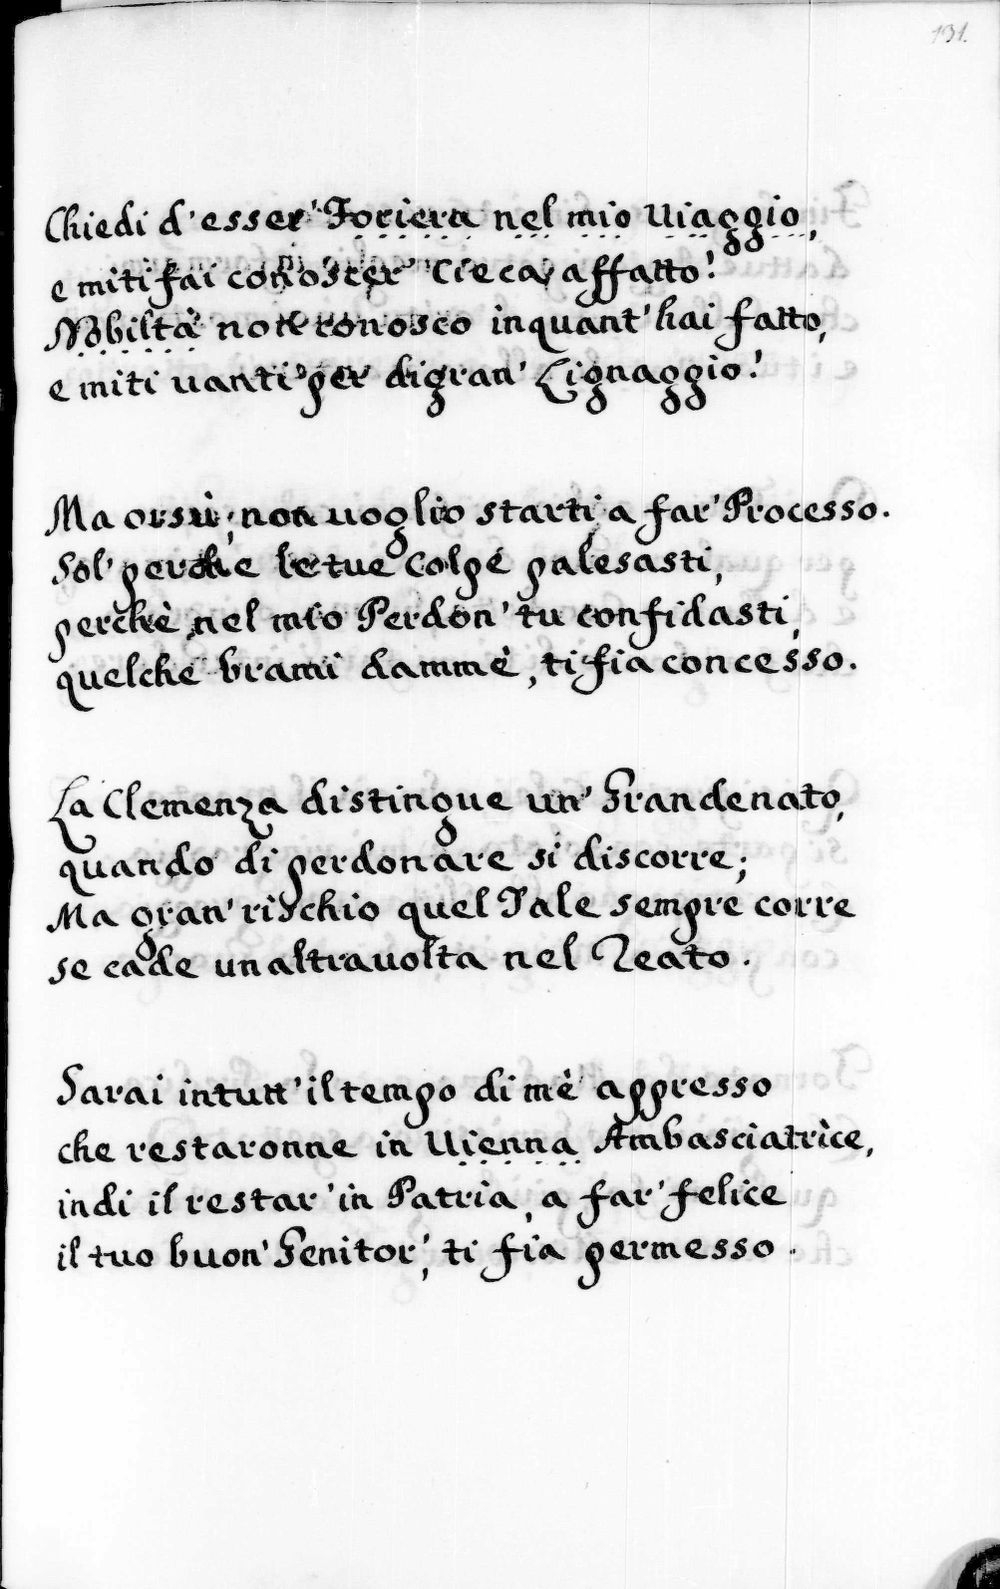 131.
Chiedi d'esser' Foriera nel mio Uiaggio,
e miti fai conoscer' Cieca, affatto!
Nobiltà non conosco inquant' hai fatto,
e miti uanti per digran' Lignaggio!
Ma orsù, non uoglio starti a far' Processo.
Sol' perche le tue Colpe palesasti,
perchè nel mio Perdon' tu confidasti,
quelche brami dammè, ti fia concesso.
La Clemenza distingue un' Grandenato,
quando di perdonare si discorre;
Ma gran' rischio quel Tale sempre corre
se cade unaltrauolta nel Reato.
Sarai intutt' il tempo di mè appresso
che restaronne in Uienna Ambasciatrice,
indi il restar' in Patria, a far' felice
il tuo buon' Genitor', ti fia permesso.